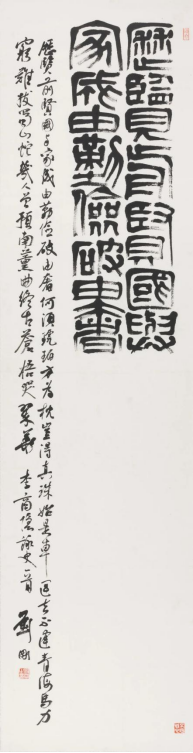 歷覽前賢國與
家成由勤儉破由奢
歷覽前賢國与家成由勤儉破由奢何須琥珀方為枕豈得真珠始是車運去不逢青海馬力
窮難拔蜀山蛇幾人曾預南薰曲終古蒼梧哭翠華 李商隱詠史一首